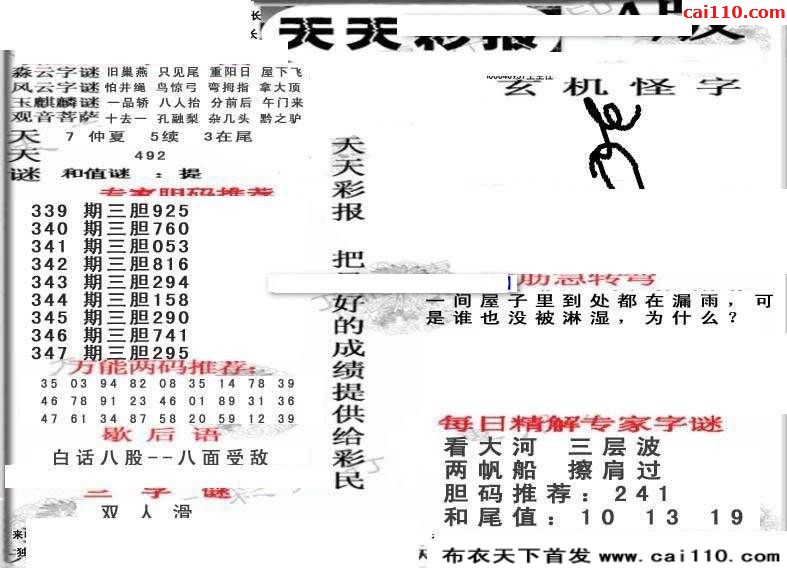 cai110.com
天天彩报
森云字谜 旧巢燕 只见尾 重阳日 屋下飞
风云字谜 怕井绳 鸟惊弓 弯拇指 拿大顶
玉麒麟谜 一品轿 八人抬 分前后 午门来
观音菩萨 十去一 孔融梨 杂几头 黔之驴
天 7 仲夏 5续 3在尾
天 492
谜 和值谜 ：提
专家胆码推荐
339 期三胆925
340 期三胆760
341 期三胆053
342 期三胆816
343 期三胆294
344 期三胆158
345 期三胆290
346 期三胆741
347 期三胆295
万能两码推荐:
35 03 94 82 08 35 14 78 39
46 78 91 23 46 01 89 31 36
47 61 34 87 58 20 59 12 39
歇后语
白话八股--八面受敌
三字谜
双人滑
天天彩报 把
好的成绩提供给彩民
玄机怪字
脑急转弯
一间屋子里到处都在漏雨，可
是谁也没被淋湿，为什么？
每日精解专家字谜
看大河 三层波
两帆船 擦肩过
胆码推荐：241
和尾值：10 13 19
布衣天下首发 www.cai110.com